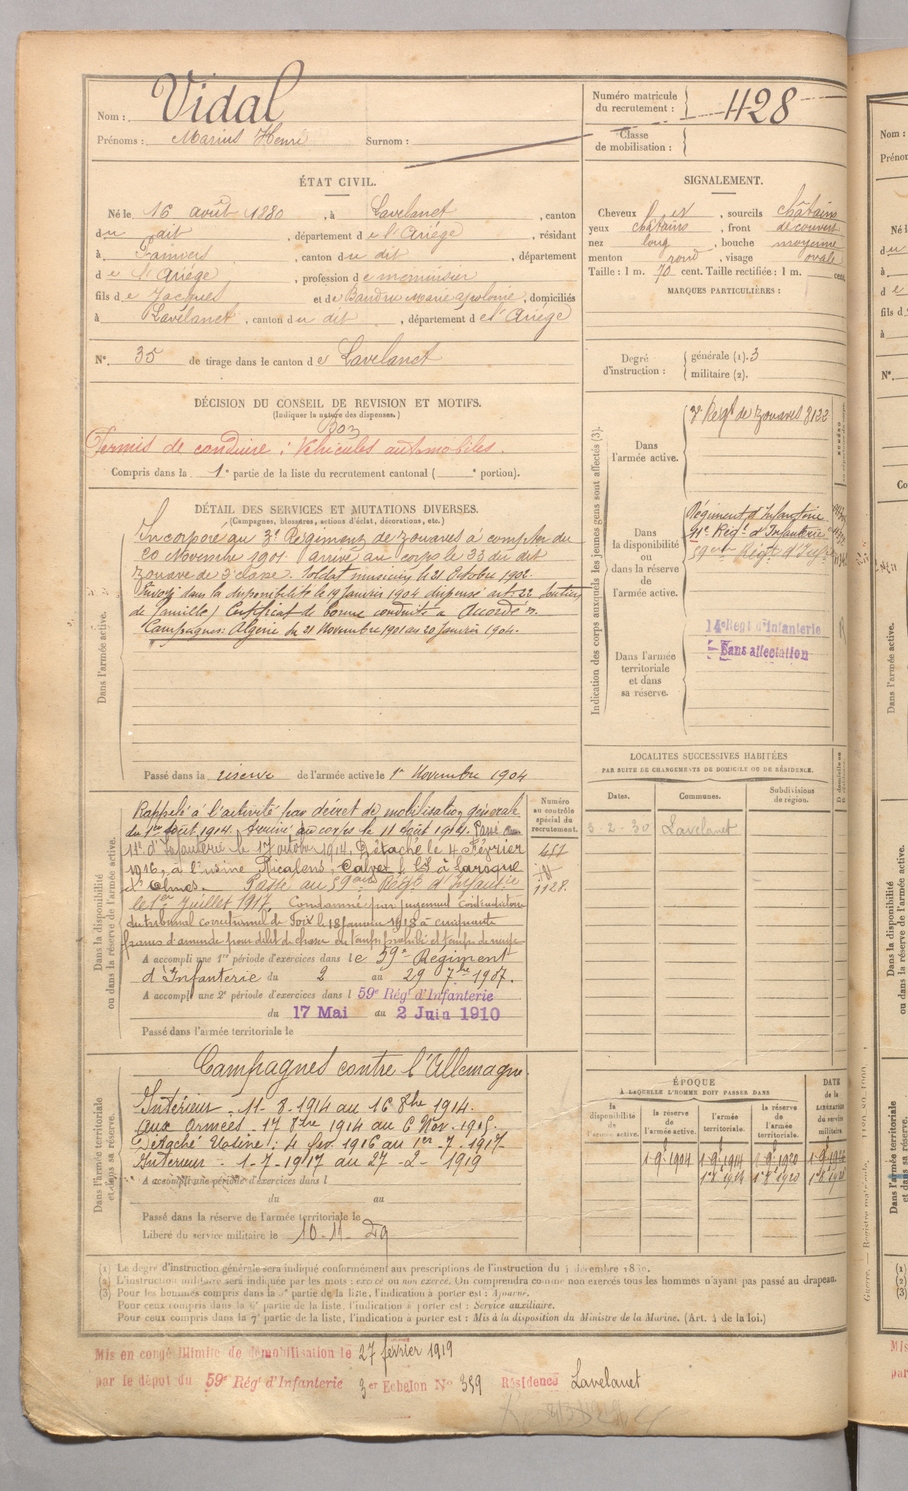 Nom : Vidal
Prénoms : Marius Henri Surnom :
Numéro matricule du recrutement : 1128
Classe de mobilisation :
ÉTAT CIVIL.
Né le 16 août 1880, à Lavelanet, canton
du dit, département de l'Ariége, résidant
à Pamiers, canton du dit, département
de l'Ariége, profession de menuisier
fils de Jacques et de Baudru Marie apolonie, domiciliés
à Lavelanet, canton du dit, département de l'Ariége
N°. 35 de tirage dans le canton de Lavelanet
SIGNALEMENT.
Cheveux et, sourcils châtains
yeux châtains, front découvert
nez long, bouche moyenne
menton rond, visage ovale
Taille : 1 m. 70 cent. Taille rectifiée : 1 m. cent.
MARQUES PARTICULIÈRES :
Degré d'instruction : générale (1). 3
militaire (2).
DÉCISION DU CONSEIL DE REVISION ET MOTIFS.
(Indiquer la nature des dispenses.)
Bon
Permis de conduire : Véhicules automobiles.
Compris dans la 1e partie de la liste du recrutement cantonal ( e portion).
DÉTAIL DES SERVICES ET MUTATIONS DIVERSES.
(Campagnes, blessures, actions d'éclat, décorations, etc.)
Dans l'armée active.
Incorporé au 3e Régiment de zouaves à compter du
20 Novembre 1901. arrivé au corps le 23 du dit
zouave de 2e classe. Soldat musicien le 21 Octobre 1902.
Envoyé dans la disponibilité le 19 Janvier 1904 dispensé art. 22 (soutien
de famille) Certificat de bonne conduite "Accordé".
Campagnes: Algérie du 21 Novembre 1901 au 20 Janvier 1904.
Passé dans la réserve de l'armée active le 1er Novembre 1904
Indication des corps auxquels les jeunes gens sont affectés (3).
Dans l'armée active.
3e Régt de zouaves 8122
Dans la disponibilité ou dans la réserve de l'armée active.
Régiment d'Infanterie
11e Régt d'Infanterie
59eme Régt d'Infie
Dans l'armée territoriale et dans sa réserve.
14e Régt d'Infanterie
Sans affectation
LOCALITES SUCCESSIVES HABITÉES
PAR SUITE DE CHANGEMENTS DE DOMICILE OU DE RÉSIDENCE.
Dates. Communes. Subdivisions de région.
3-2-30 Lavelanet
Dans la disponibilité ou dans la réserve de l'armée active.
Numéro au contrôle spécial du recrutement.
Rappelé à l'activité par décret de mobilisation générale
du 1er Août 1914. Arrivé au corps le 11 Août 1914. Passé au
11e d'Infanterie le 17 octobre 1914. Détaché le 4 Février
1916, à l'usine Ricalens, Calvet à Laroque
d'Olmes. Passé au 59eme Régt d'Infanie
le 1er Juillet 1917. Condamné par jugement contradictoire
du tribunal correctionnel de Foix le 18 Janvier 1918 à cinquante
francs d'amende pour délit de chasse en temps prohibé et temps de neige
657
1128.
A accompli une 1re période d'exercices dans le 59e Régiment
d'Infanterie du 2 au 29 7bre 1907.
A accompli une 2e période d'exercices dans l 59e Régt d'Infanterie
du 17 Mai au 2 Juin 1910
Passé dans l'armée territoriale le
Dans l'armée territoriale et dans sa réserve.
Campagnes contre l'Allemagne.
Intérieur : 11-8-1914 au 16 8bre 1914.
aux Armées - 17 8bre 1914 au 6 Nov. 1915.
Détaché Usine : 4 fev. 1916 au 1er-7-1917
Intérieur - 1-7-1917 au 27-2-1919
A accompli une période d'exercices dans l
du au
Passé dans la réserve de l'armée territoriale le
Libéré du service militaire le 10-11-29
ÉPOQUE
À LAQUELLE L'HOMME DOIT PASSER DANS
DATE de la LIBÉRATION du service militaire.
la disponibilité de l'armée active. la réserve de l'armée active. l'armée territoriale. la réserve de l'armée territoriale.
(1) Le degré d'instruction générale sera indiqué conformément aux prescriptions de l'instruction du 4 décembre 18
(2) L'instruction militaire sera indiquée par les mots : exercé ou non exercé. On comprendra comme non exercés tous les hommes n'ayant pas passé au drapeau.
(3) Pour les hommes compris dans la partie de la liste, l'indication à porter est : Ajourné.
Pour ceux compris dans la 6e partie de la liste, l'indication à porter est : Service auxiliaire.
Pour ceux compris dans la 7e partie de la liste, l'indication à porter est : Mis à la disposition du Ministre de la Marine. (Art. 4 de la loi.)
Mis en congé illimité de démobilisation le 27 février 1919
par le dépôt du 59e Régt d'Infanterie 3er Echelon No 359 Résidence Lavelanet